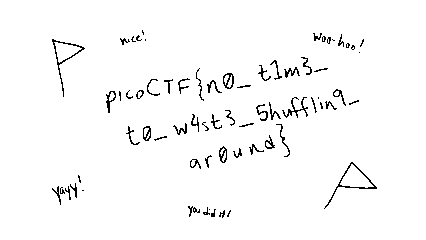 nice!
woo-hoo!
picoCTF{n0_t1m3_
t0_w4st3_5hufflin9_
ar0und}
yayy!
you did it!